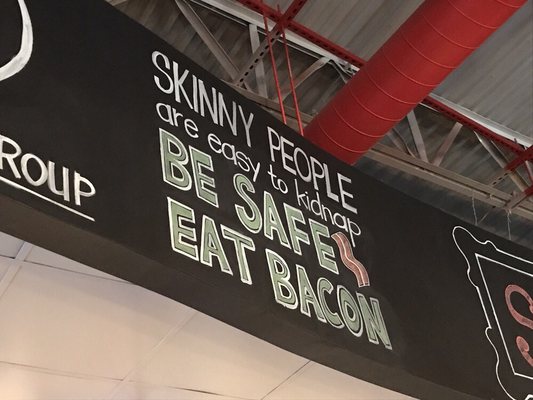 ROUP
SKINNY PEOPLE
are easy to kidnap
BE SAFE
EAT BACON